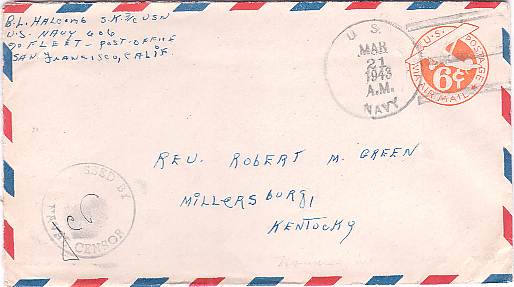 B.L. HALCOMB S.K. 3/c USN
U.S. NAVY 606
% FLEET - POST-OFFICE
SAN, FRANCISCO, CALIF.
U. S.
MAR
21
1943
A.M.
NAVY
U.S. POSTAGE
6¢
VIA AIR MAIL
REV. ROBERT M. GREEN
MILLERSBURG,
KENTUCKY
SSED BY
NAVAL CENSOR